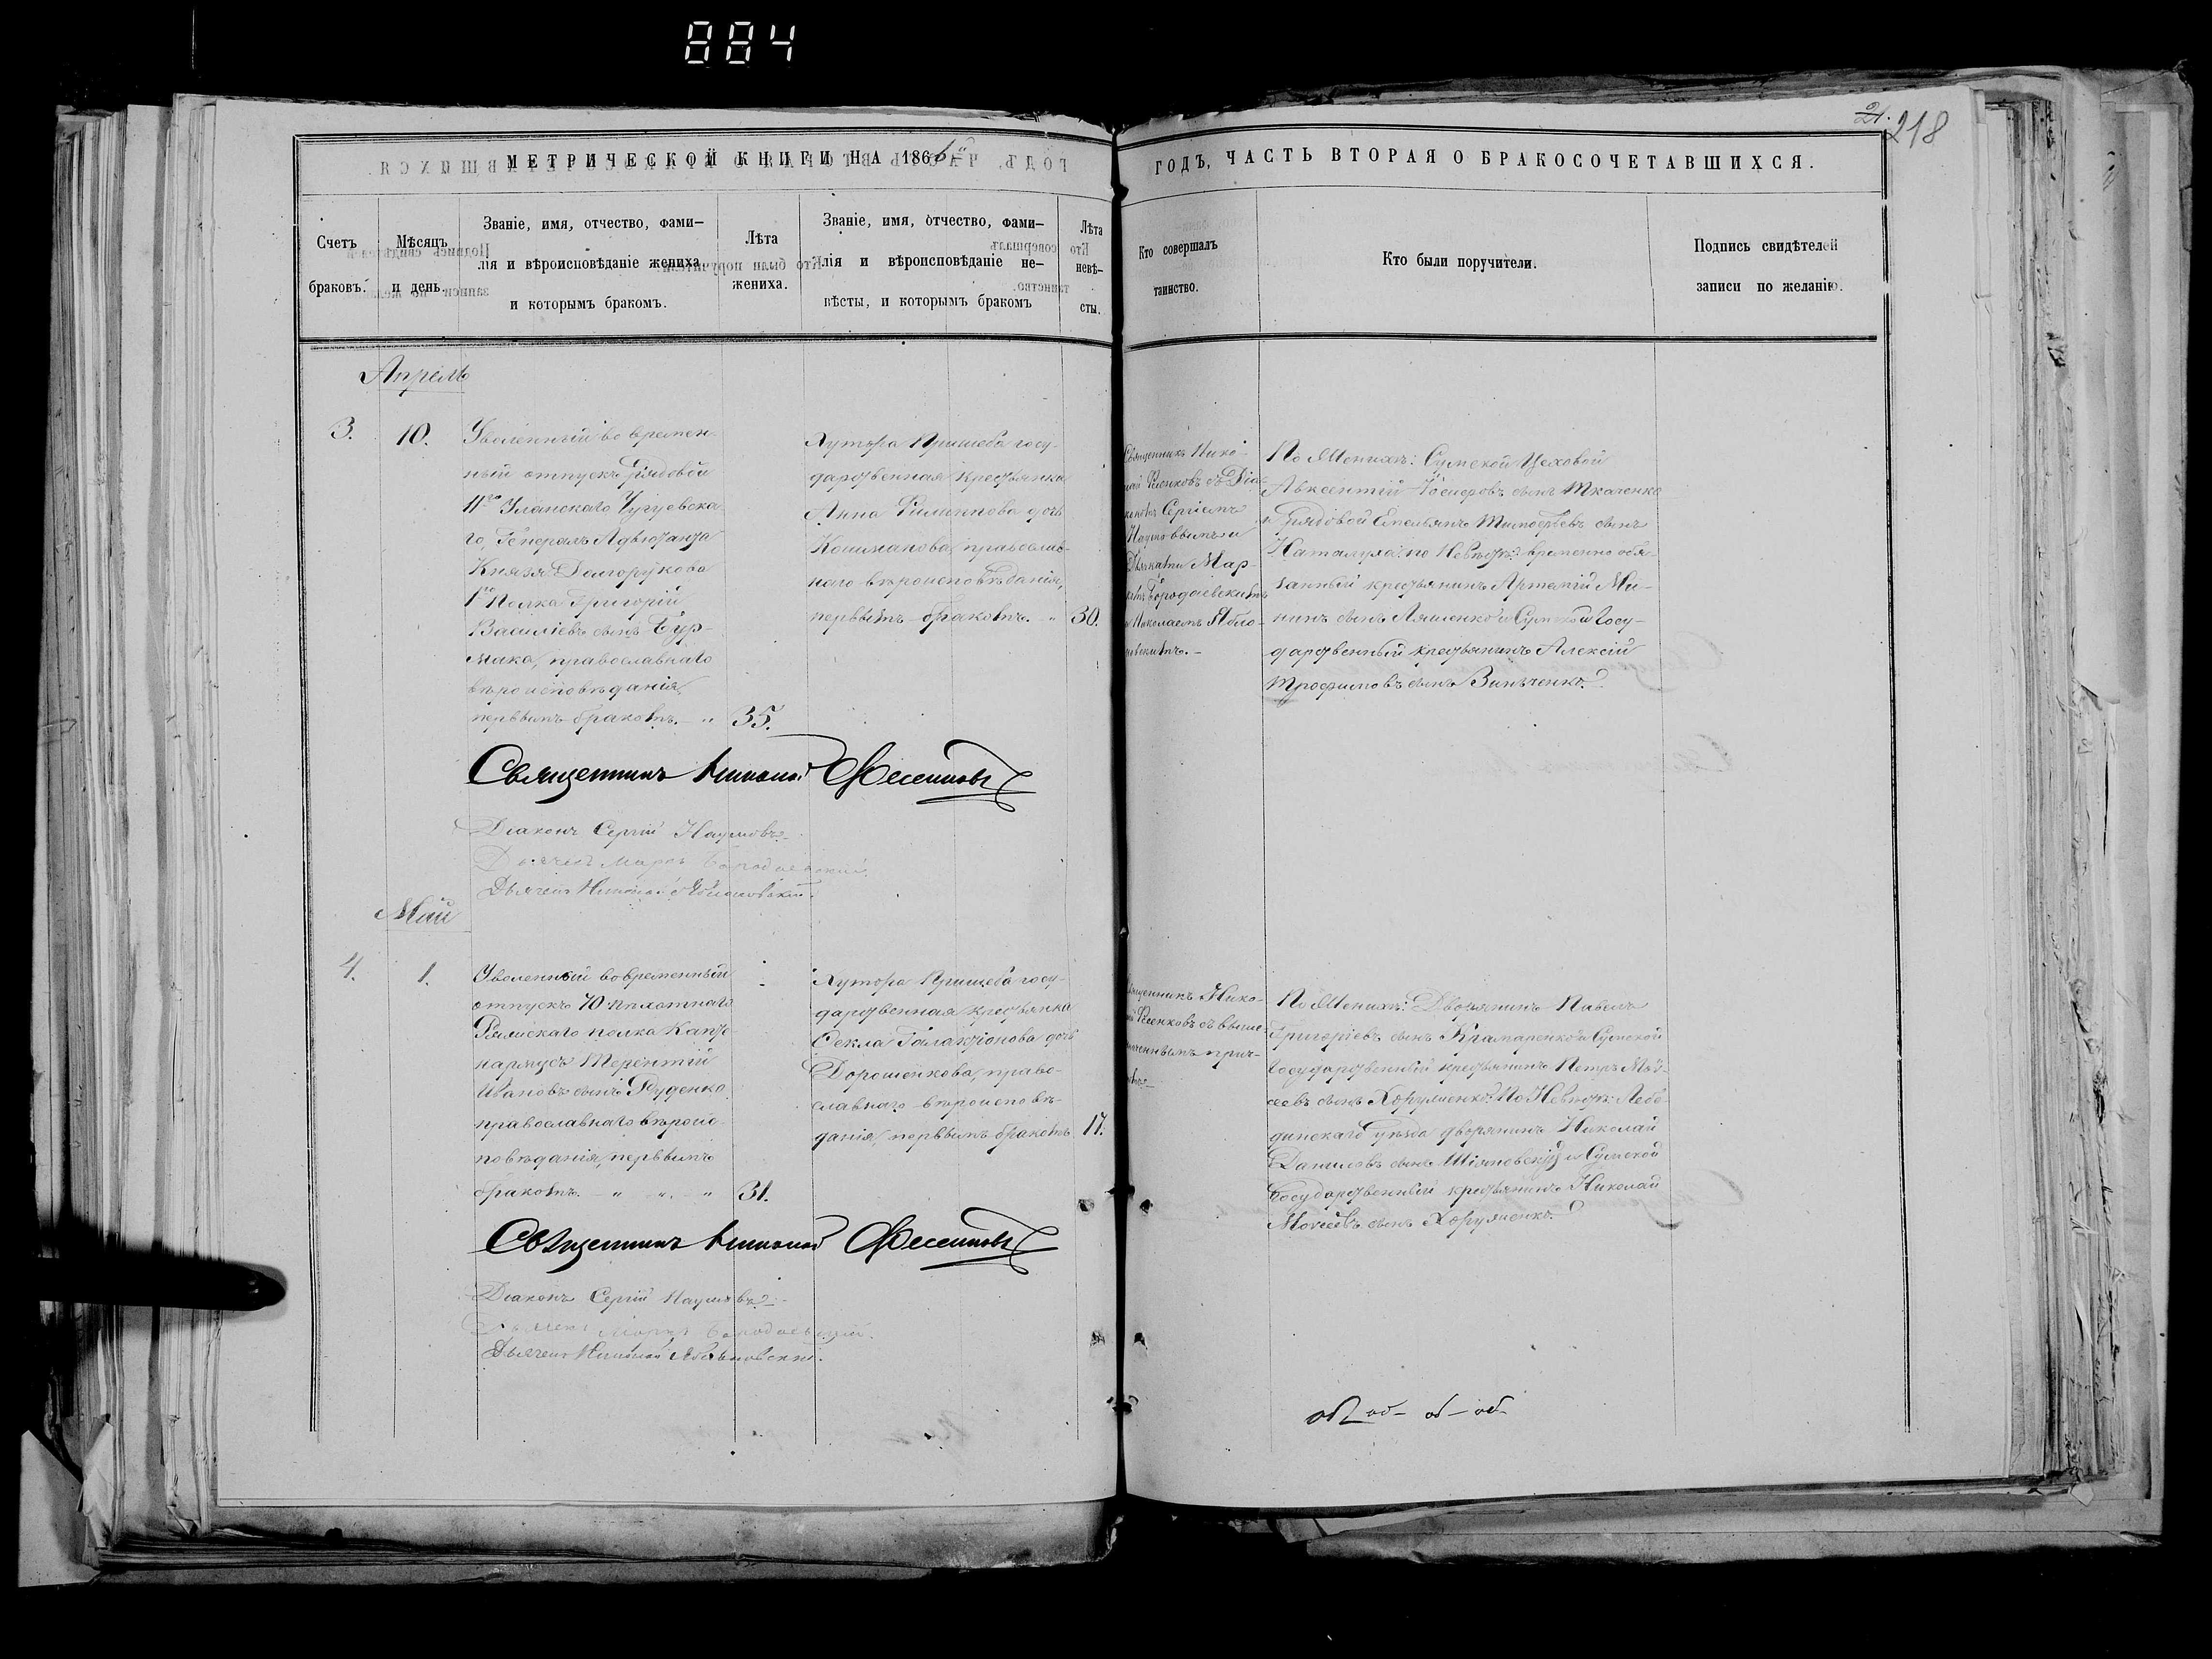 884
21.
218
МЕТРИЧЕСКОЙ КНИГИ НА 1866й
ГОДЪ, ЧАСТЬ ВТОРАЯ О БРАКОСОЧЕТАВШИХСЯ.
Счетъ
браковъ.
Мѣсяцъ
и день.
Званіе, имя, отчество, фами-
лія и вѣроисповѣданіе жениха
и которымъ бракомъ.
Лѣта
жениха.
Званіе, имя, отчество, фами-
лія и вѣроисповѣданіе не-
вѣсты, и которымъ бракомъ
Лѣта
невѣ-
сты.
Кто совершалъ
таинство.
Кто были поручители.
Подпись свидѣтелей
записи по желанію.
Апрель
3.
10.
Уволенный во времен-
ный отпускъ Рядовой
11го Уланскаго Чугуевска-
го, Генералъ Адъютанта
Князя Долгорукова
1го Полка Григорій
Василіевъ сынъ Бур-
мака, православнаго
вѣроисповѣданія,
первымъ бракомъ. "
35.
Хутора Пришеба госу-
дарственная крестьянка
Анна Филиппова дочь
православ-
наго вѣроисповѣданія,
первымъ бракомъ. "
30.
Священникъ Нико-
лай Фесенковъ съ Діа-
кономъ Сергіемъ
Наумовымъ и
Дьячками Мар-
комъ Бородаевскимъ
и Николаемъ Ябло-
новскимъ.-
По Женихѣ: Сумской Цеховой
Авксентій Іосифовъ сынъ Ткаченко
и Рядовой Емельянъ Тимофѣевъ сынъ
Наталуха: по Невѣстѣ: временно обя-
занный крестьянинъ Артемій Ми-
нинъ сынъ Ляшенко и Сумской Госу-
дарственный крестьянинъ Алексѣй
Трофимовъ сынъ Зинченко.
Священникъ Николай Фесенковъ
Діаконъ Сергій Наумовъ
Дьячекъ Маркъ Бородаевский.
Дьячекъ Николай Яблоновский.
Май
4.
1.
Уволенный вовременный
отпускъ 70 Пѣхотнаго
Ряжскаго полка Капте-
нармусъ Терентій
Ивановъ сынъ Руденко
православнаго вѣроис-
повѣданія, первымъ
бракомъ. " " "
31.
Хутора Пришеба госу-
дарственная крестьянка
Ѳекла Галактіонова дочь
Дорошенкова, право-
славнаго вѣроисповѣ-
данія, первымъ бракомъ
17.
Священникъ Нико-
лай Фесенковъ съ выше-
означеннымъ прич-
томъ.-
По Женихѣ: Дворянинъ Павелъ
Григоріевъ сынъ Крамаренко и Сумской
Государственный крестьянинъ Петръ Мой-
сеевъ сынъ Хоружченко: По Невѣстѣ: Лебе-
динскаго уѣзда дворянинъ Николай
Даниловъ сынъ и Сумской
Государственный крестьянинъ Николай
Моисеевъ сынъ
Священникъ Николай Фесенковъ
Діаконъ Сергій Наумовъ
Дьячекъ Маркъ Бородаевский.
Дьячекъ Николай Яблоновский.